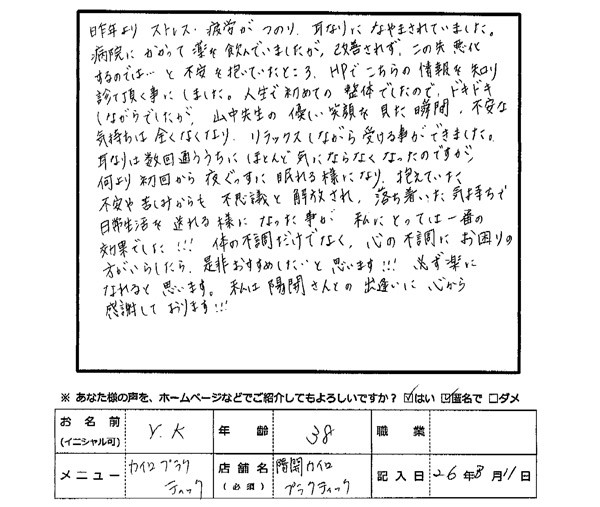 昨年より ストレス・疲労が つのり、耳なりに なやまされていました。
病院に かかって 薬を 飲んでいましたが、改善されず、この先 悪化
するのでは… と 不安を 抱いていたところ、HPで こちらの 情報を 知り
診て頂く事に しました。人生で初めての 整体でしたので、ドキドキ
しながらでしたが、山中先生の 優しい 笑顔を 見た 瞬間、不安な
気持ちは 全くなくなり、リラックスしながら 受ける事が できました。
耳なりは 数回 通ううちに ほとんど 気にならなく なったのですが、
何より 初回から 夜ぐっすに 眠れる様になり、抱えていた
不安や 苦しみからも 不思議と 解放され、落ち着いた 気持ちで
日常生活を 送れる 様に なった 事が 私に とっては 一番の
効果でした!!! 体の不調だけでなく、心の 不調に お困りの
方がいらしたら、是非おすすめしたいと 思います!!! 必ず楽に
なれると 思います。私は 陽開さんとの 出逢いに 心から
感謝して おります!!!
※ あなた様の声を、ホームページなどでご紹介してもよろしいですか? ☑はい ☑匿名で □ダメ
お名前 (イニシャル可) Y.K 年齢 38 職業
メニュー カイロプラクティック 店舗名 (必須) 陽開カイロプラクティック 記入日 26年8月11日